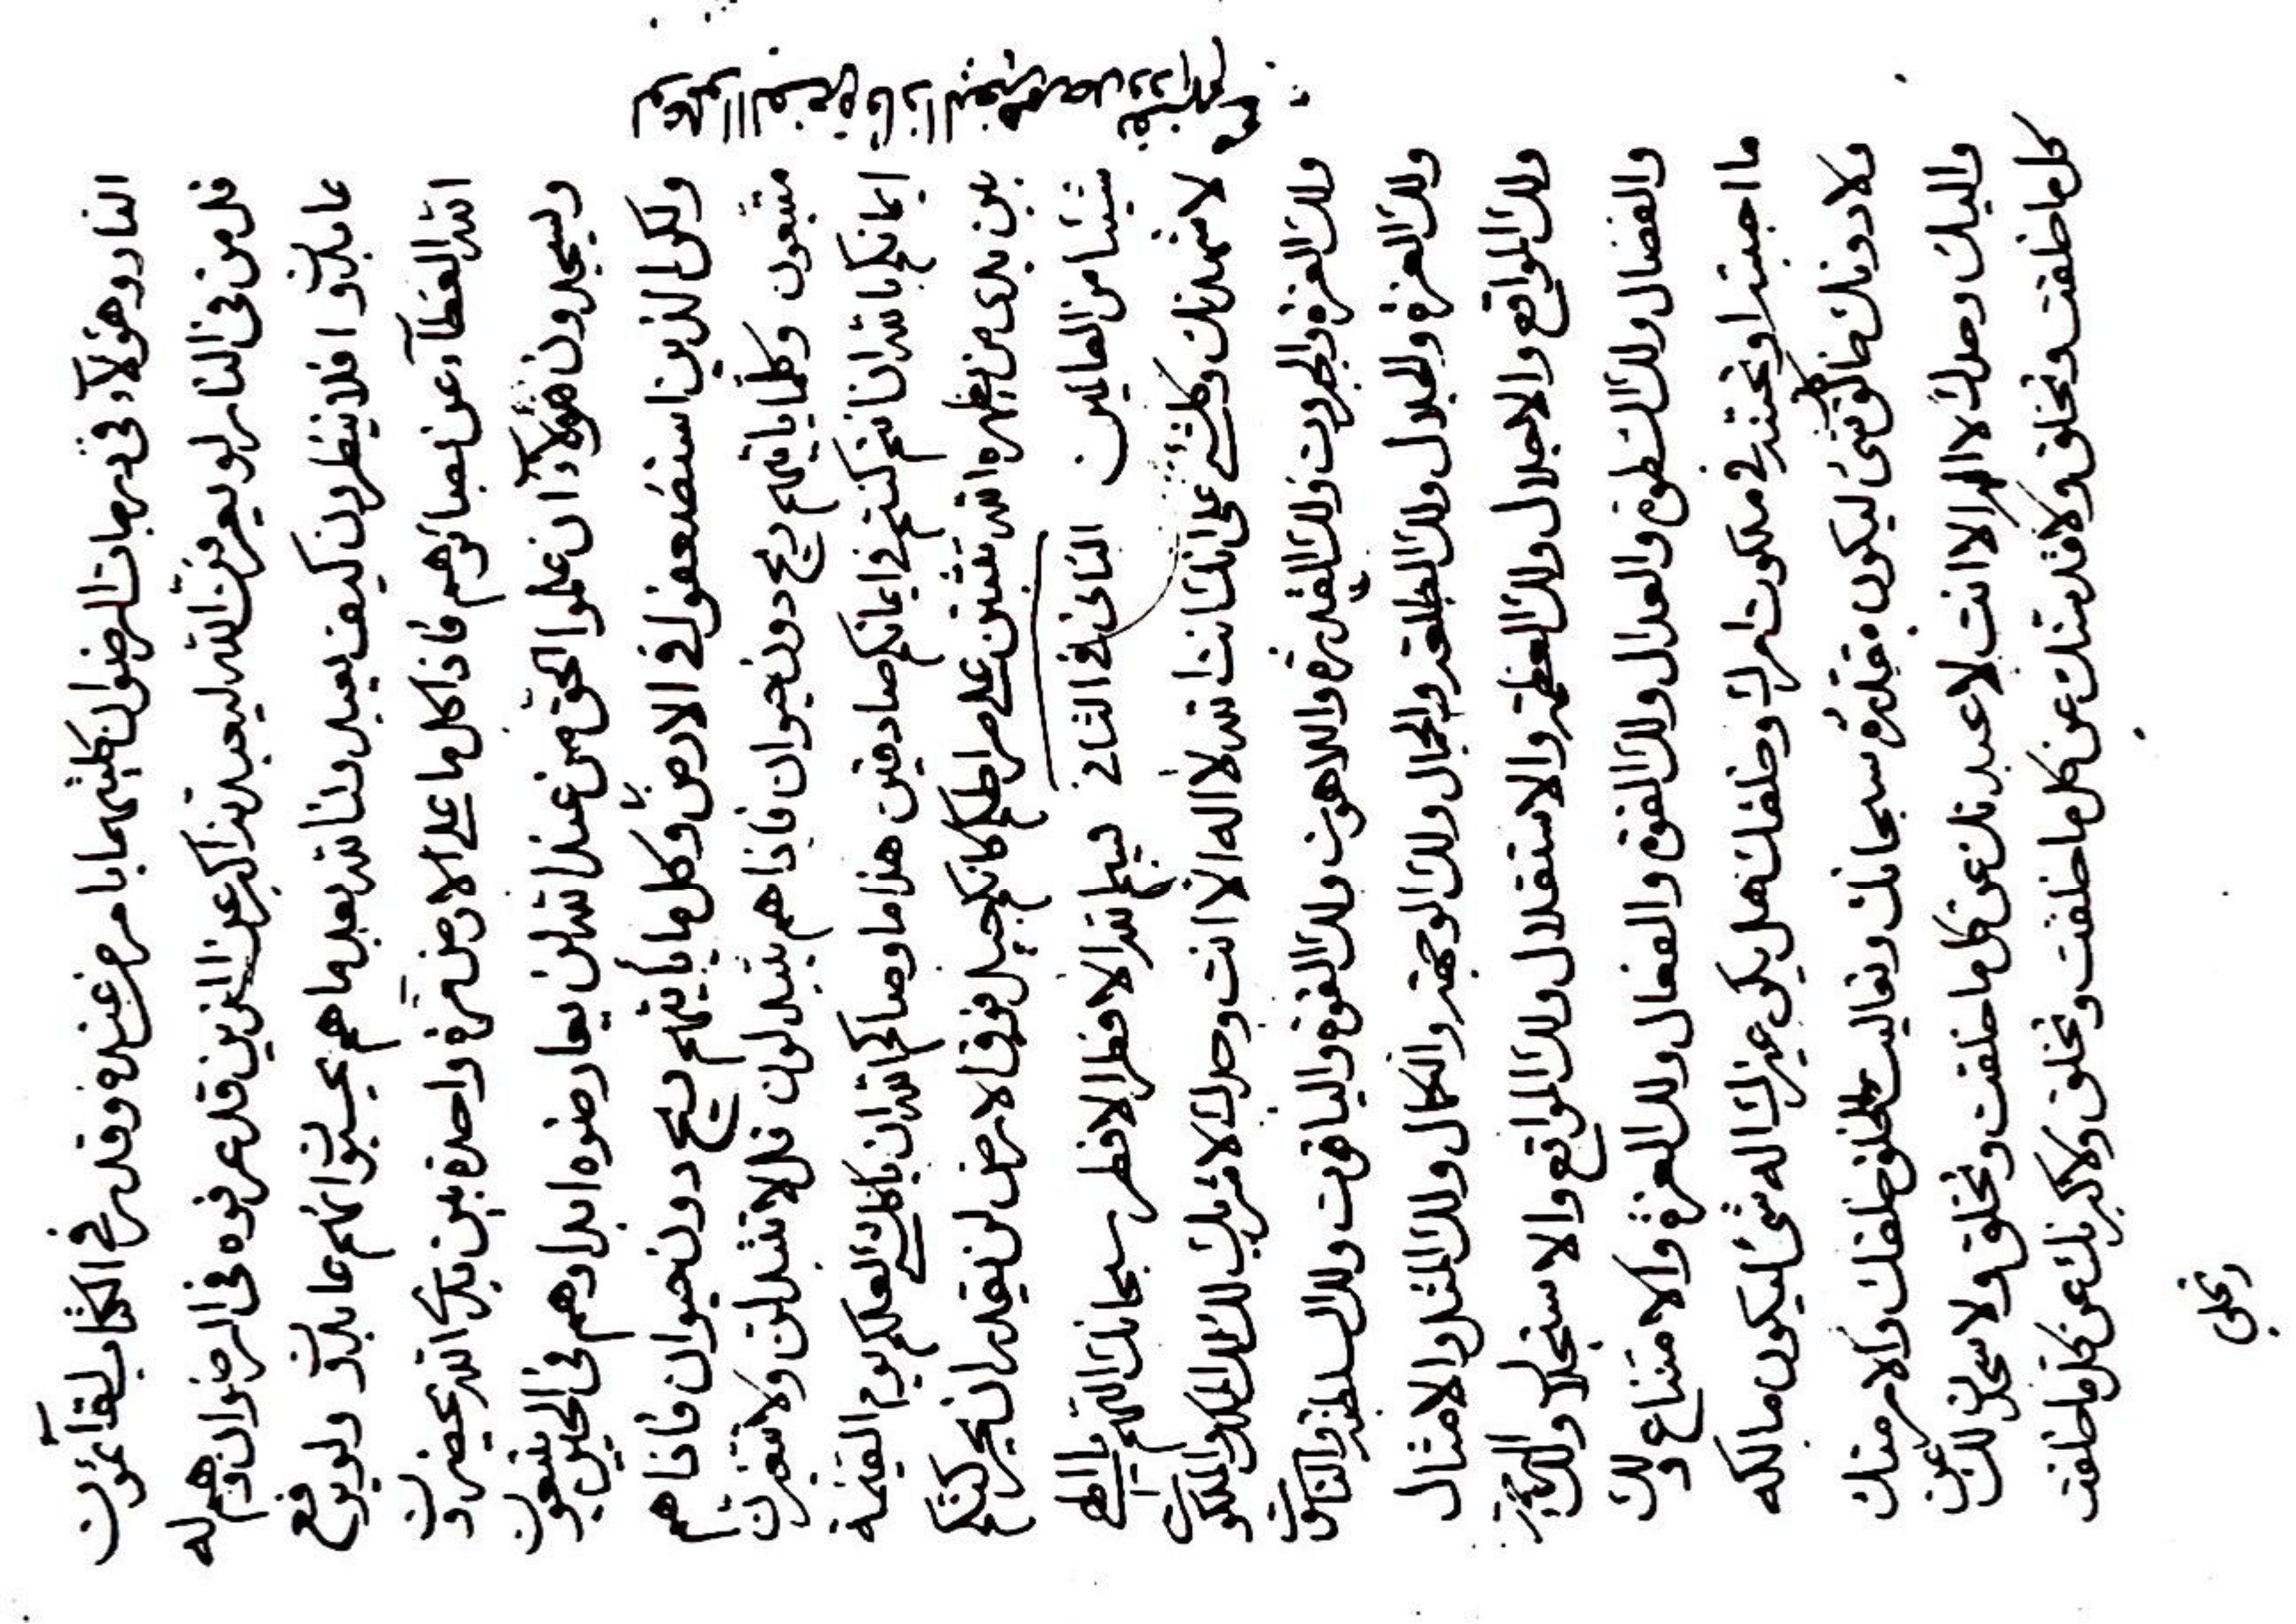 النار وهؤلاء في درجات الرضوان كلتيهما بامر من عنده وقدر في الكتاب لقائمون
قل من في النار لو يعرفن الله ليعبدنه اكبر عن الذين قد عرفوه في الرضوان وهم له
عابدون افلا ينظرون كيف يعبدون الله بعد ما هم يحسبوا انهم عابدون ولو يرفع
الله الغطآء عن بصائرهم فاذا كل ما على الارض مرة واحدة بين يدي الله يحضرون
ويسجدون هؤلآء ان علموا الحق من عند الله لن يعارضوه ابدا وهم في الحين يتبعون
ولكن الذين استضعفوا في الارض وكل ما ياتيهم ريح دون حيوان فاذا هم
متبعون وكلما ياتيهم ريح دون حيوان فاذا هم يتبدلون قل لا تتبدلن ولا تتغيرن
ايمانكم بالله ان انتم كنتم في ايمانكم صادقين هذا ما وصاكم الله ان يا كلشئ لعلكم يوم القيمة
بين يدي من يظهره الله تثبتن على صراطكم كانكم جبل فوق الارض لن يقدر ان يحركنكم
شيئا من العالمين الثاني في الثاني بسم الله الافطر الافطر سبحانك اللهم يا الهي
لاشهدنك وكلشئ على انك انت الله لا اله الا انت وحدك لا شريك لك لك الملك والملكوت
ولك العزة والجبروت ولك القدرة واللاهوت ولك القوة والياقوت ولك السلطنة والناسوت
ولك العزة والجلال ولك الطلعة والجمال ولك الوجهة والكمال ولك المثل والامثال
ولك المواقع والاجلال ولك العظمة والاستقلال ولك المواقع والاستجلال ولك
والفضال ولك السطوة والعدال ولك القوة والفعال ولك العزة والامتناع ولك
ما احببته او تحبنه في ملكوت امرك وخلقك هل يكن غيرك اله شئ ليكون مالكه
ولا دونك خالق كلشئ ليكون مقدره سبحانك وتعاليت الخلق خلقك والامر منك
واليك وحدك لا اله الا انت لاعبدنك عن كل ما خلقت وتخلق ولاسجدن لك عن
كل ما خلقت وتخلق ولاقدسنك عن كل ما خلقت وتخلق ولاكبرنك عن كل ما خلقت
وتخلق